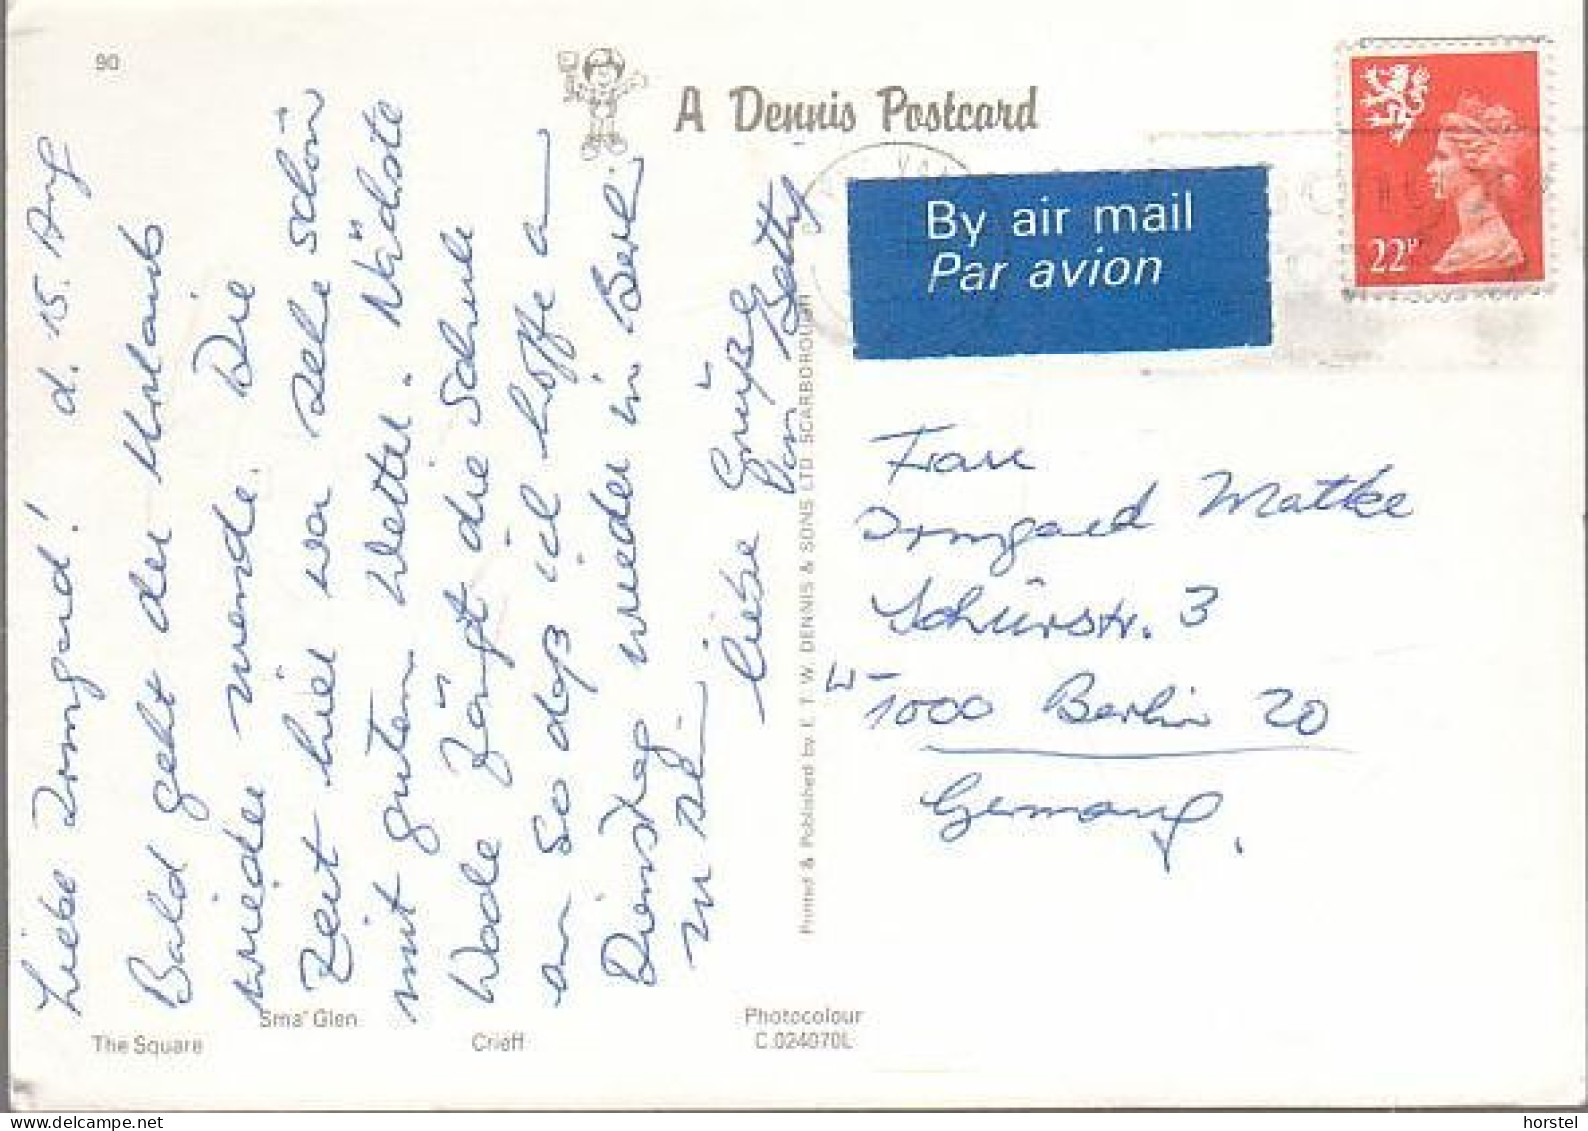 90
A Dennis Postcard
By air mail
Par avion
22P
d. 15. Aug
Liebe Irmgard!
Bald geht der Urlaub
wieder zuende. Die
Zeit hier war sehr schön
mit gutem Wetter. Nächste
Woche fängt die Schule
an so daß ich hoffe a
Dienstag wieder in Berlin
zu sein.
liebe Grüße
von Betty
Printed & Published by E. T. W. DENNIS & SONS LTD. SCARBOROUGH
Frau
Irmgard Matke
Schürstr. 3
W-1000 Berlin 20
Germany.
The Square
Sma' Glen
Crieff
Photocolour
C.024070L
horstel